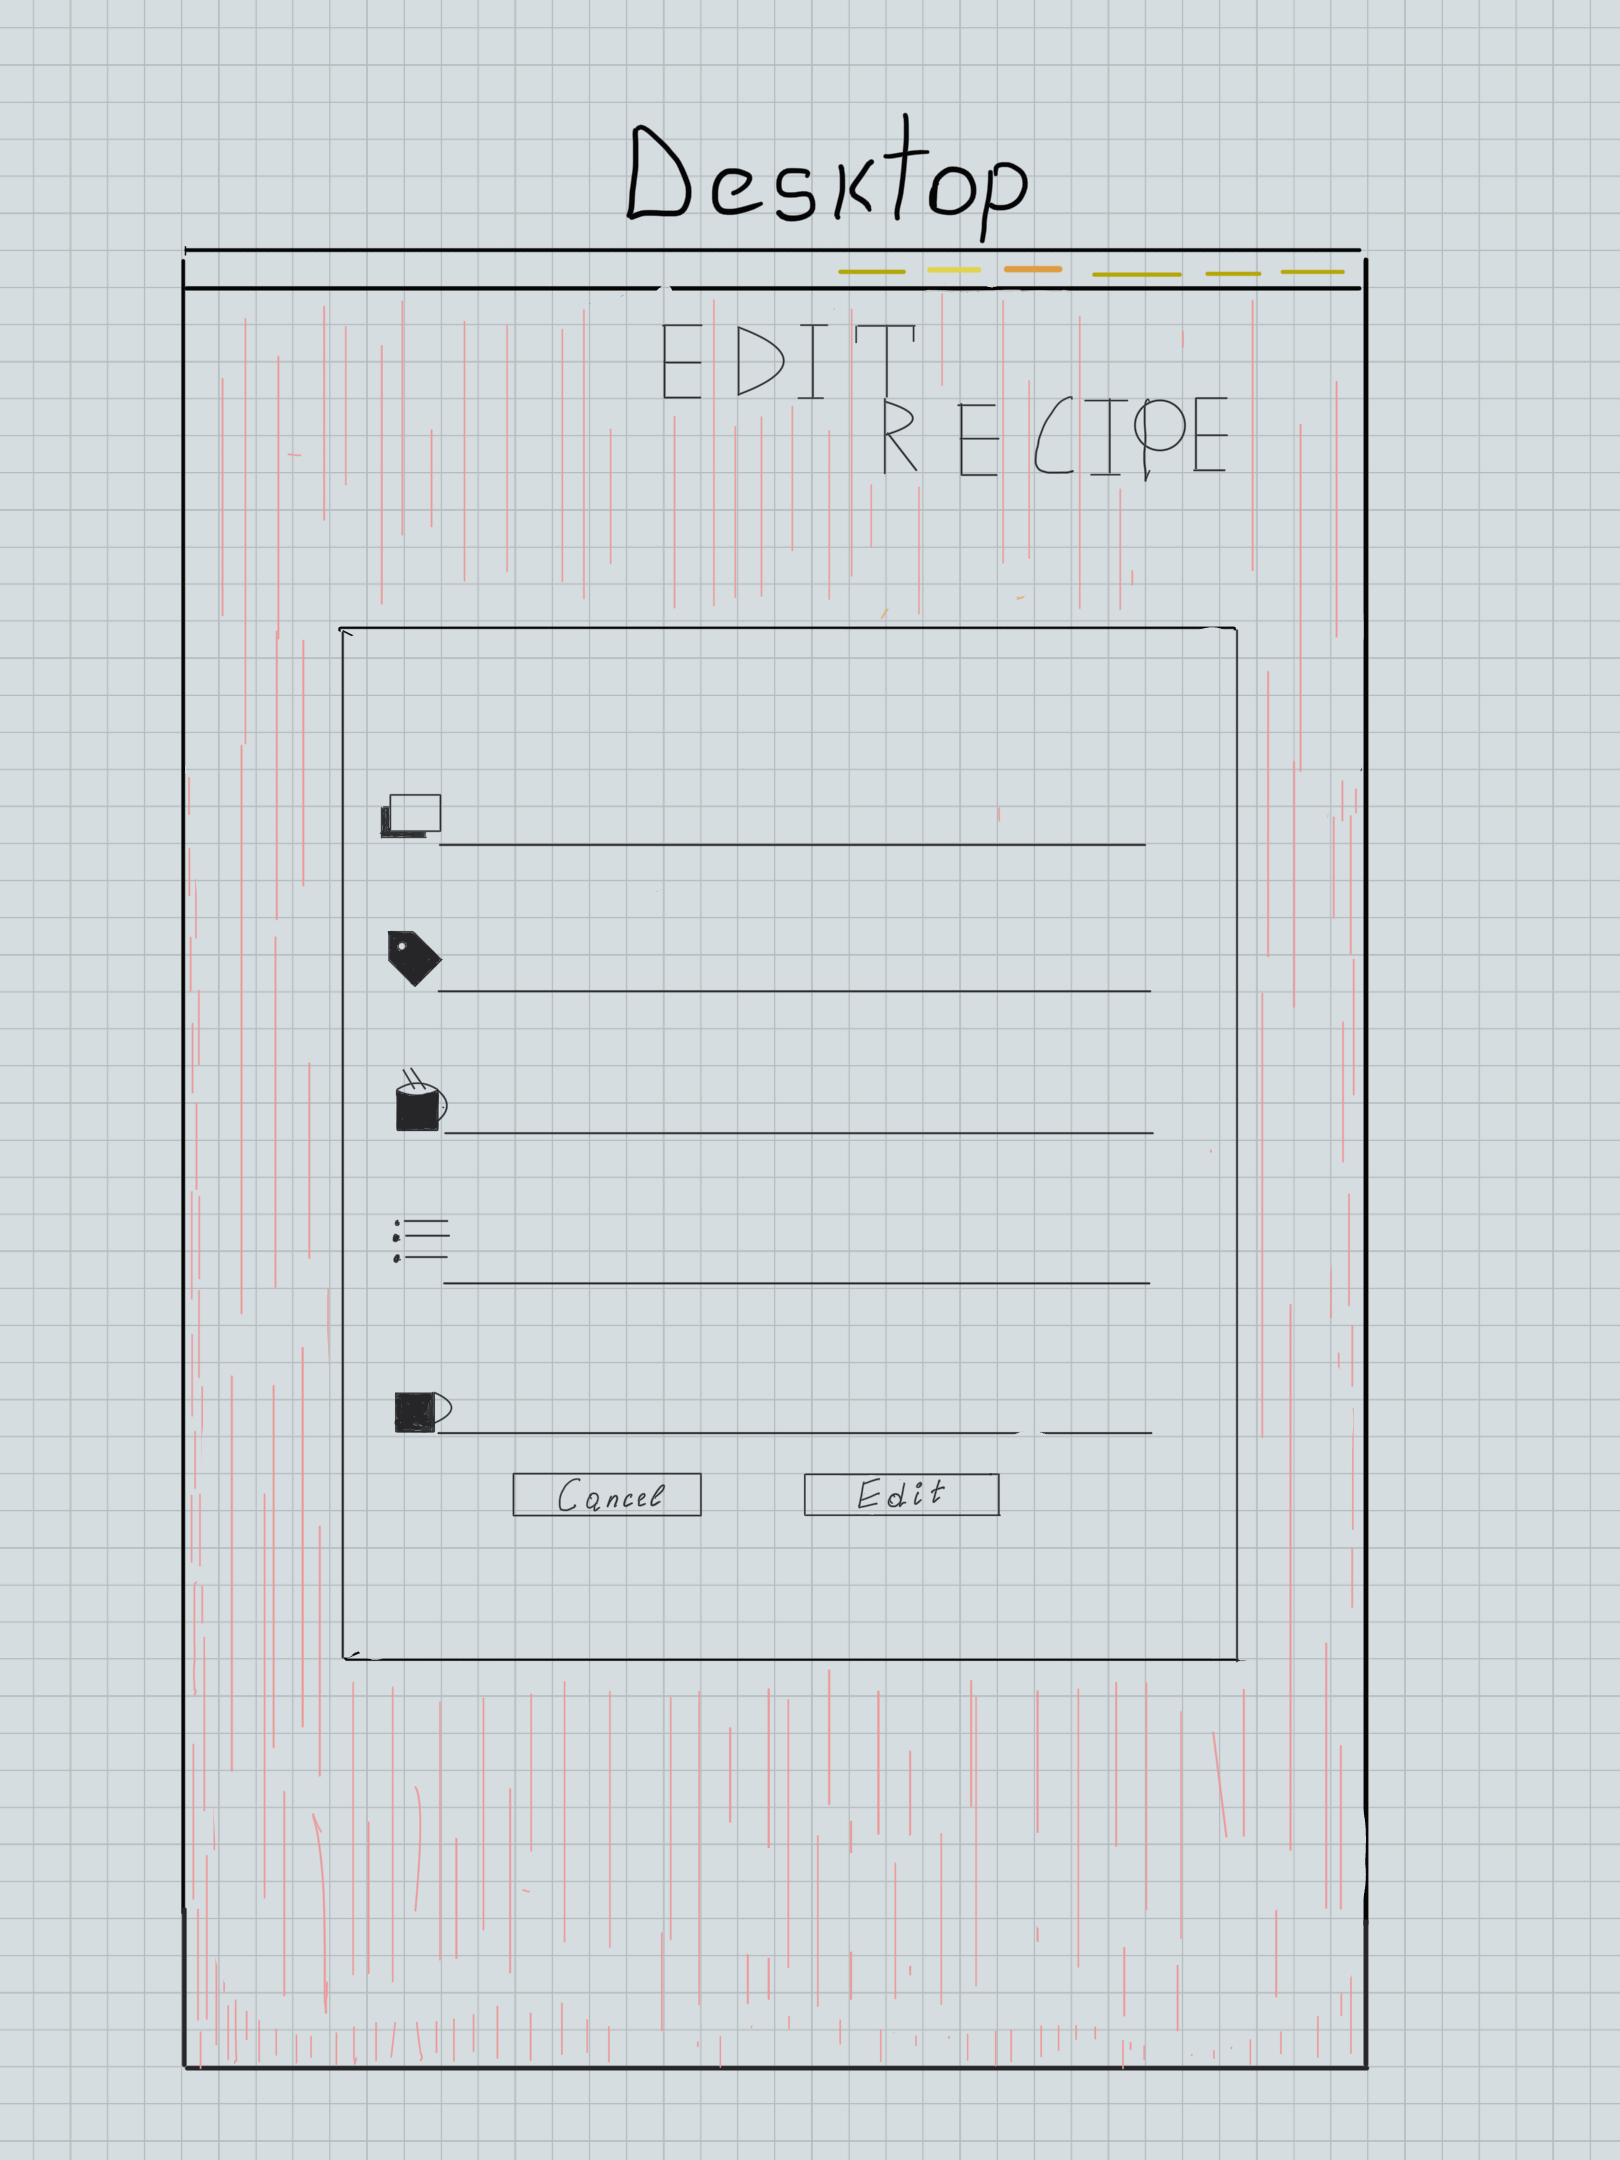 Desktop
EDIT
RECIPE
Cancel
Edit